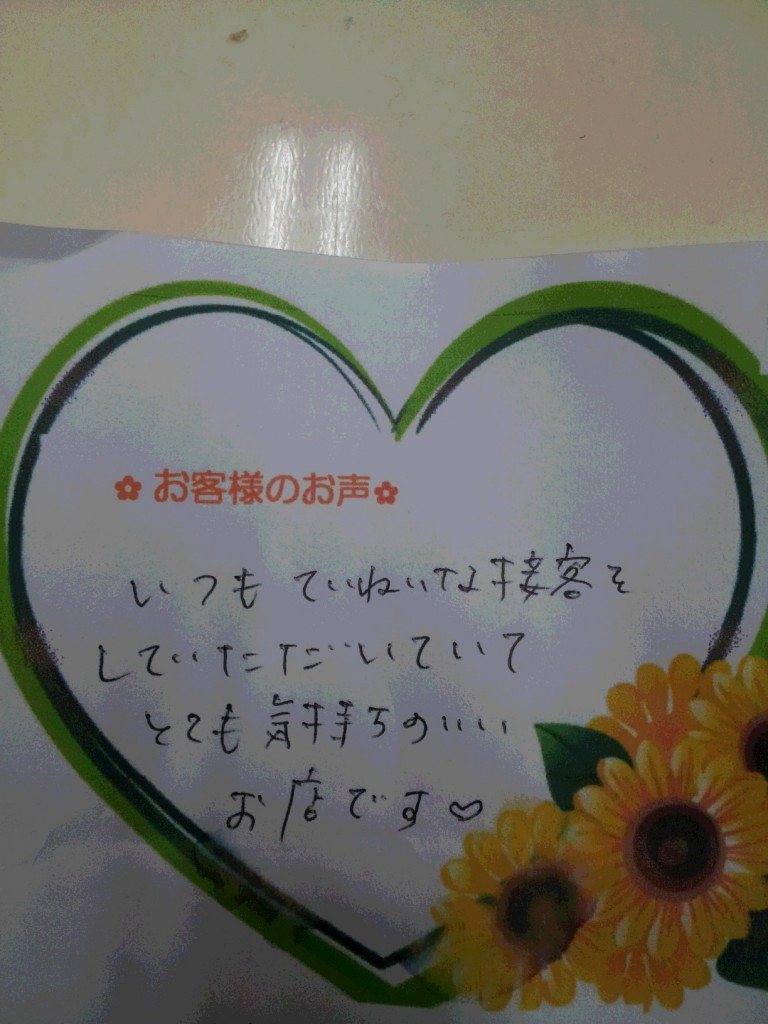 お客様のお声
いつもていねいな接客を
していただいていて
とても気持ちのいい
お店です♡